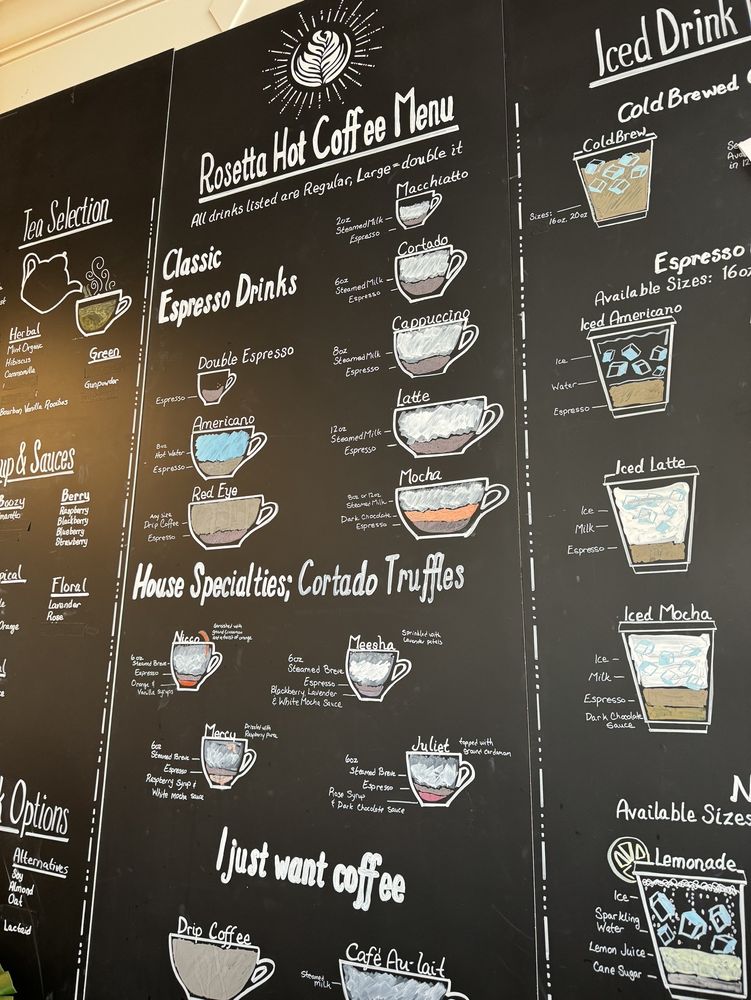 Tea Selection
Herbal
Mint Organic
Hibiscus
Cammomilla
Green
Gunpowder
Bourbon Vanilla Rooibos
up & Sauces
Boozy
Amaretto
Berry
Raspberry
Blackberry
Blueberry
Strawberry
pical
Orange
Floral
Lavender
Rose
k Options
Alternatives
Soy
Almond
Oat
Lactaid
Rosetta Hot Coffee Menu
All drinks listed are Regular, Large=double it
Classic
Espresso Drinks
Double Espresso
Espresso
Americano
8oz
Hot Water
Espresso
Red Eye
Any size
Drip Coffee
Espresso
Macchiatto
2oz
Steamed Milk
Espresso
Cortado
6oz
Steamed Milk
Espresso
Cappuccino
8oz
Steamed Milk
Espresso
Latte
12oz
Steamed Milk
Espresso
Mocha
8oz or 12oz
Steamed Milk
Dark Chocolate
Espresso
House Specialties; Cortado Truffles
Nicco
Garnished with
ground cinnamon
and a twist of orange
6oz
Steamed Breve
Espresso
Orange &
Vanilla syrups
Meesha
Sprinkled with
Lavender petals
6oz
Steamed Breve
Espresso
Blackberry Lavender
& White Mocha Sauce
Mercy
Drizzled with
Raspberry Puree
6oz
Steamed Breve
Espresso
Raspberry Syrup &
White mocha sauce
Juliet
topped with
ground cardamom
6oz
Steamed Breve
Espresso
Rose Syrup
& Dark Chocolate Sauce
I just want coffee
Drip Coffee
Café Au-lait
Steamed
Milk
Iced Drink
Cold Brewed
ColdBrew
Sizes:
16oz, 20oz
in 12
Espresso
Available Sizes: 16oz
Iced Americano
Ice
Water
Espresso
Iced Latte
Ice
Milk
Espresso
Iced Mocha
Ice
Milk
Espresso
Dark Chocolate
Sauce
N
Available Sizes
Lemonade
Ice
Sparkling
Water
Lemon Juice
Cane Sugar